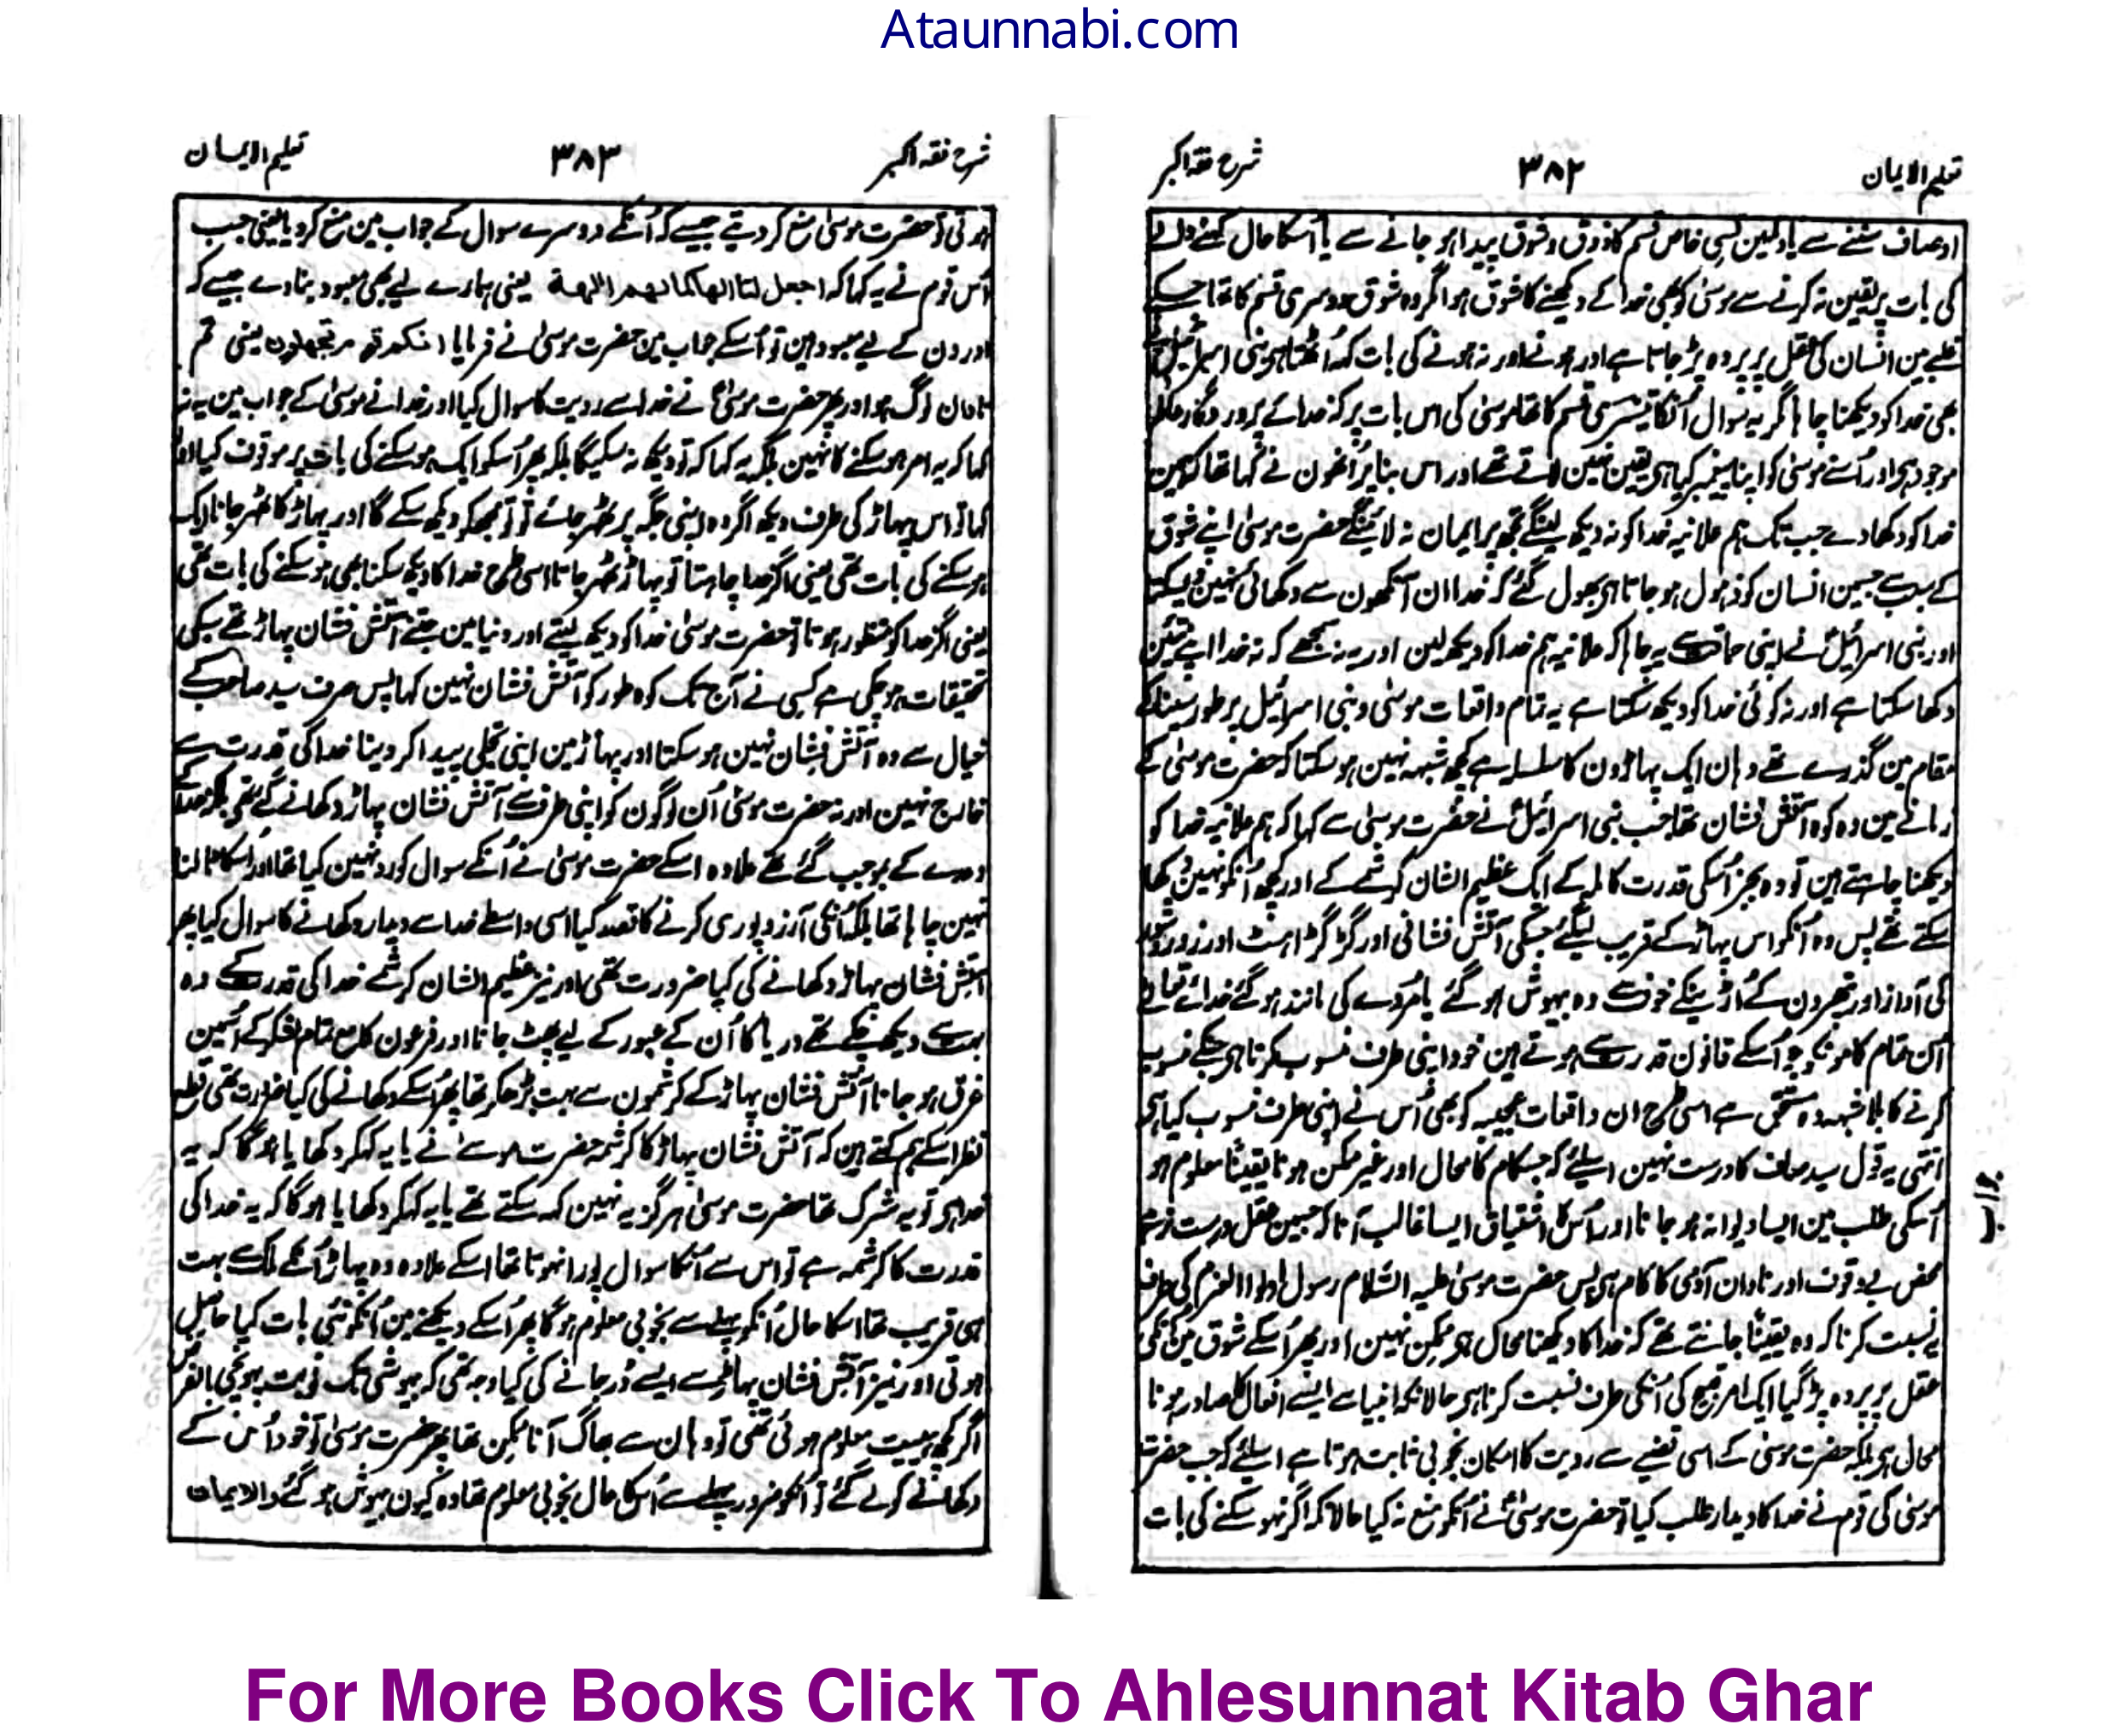 Ataunnabi.com
تعلیم الایمان
۳۸۲
شرح فقہ اکبر
اوصاف سننے سے یا دلمین کسی خاص قسم کا ذوق و شوق پیدا ہو جانے سے یا اُسکا حال کہنے والے
کی بات پر یقین نہ کرنے سے موسیٰ کو بھی خدا کے دیکھنے کا شوق ہوا مگر وہ شوق دوسری قسم کا تھا جسکے
غلبے مین انسان کی عقل پر پردہ پڑ جاتا ہے اور ہونے اور نہ ہونے کی بات کہہ اُٹھتا ہی بنی اسرائیل نے
بھی خدا کو دیکھنا چاہا مگر یہ سوال اُنکا تیسری قسم کا تھا موسیٰ کی اس بات پر کہ خدائے پروردگار عالم
موجود ہی اور اُسنے موسیٰ کو اپنا پیغمبر کیا ہی یقین نہین لاتے تھے اور اس بنا پر اُنھون نے کہا تھا کہ ہمین
خدا کو دکھا دے جب تک ہم علانیہ خدا کو نہ دیکھ لینگے تجھ پر ایمان نہ لائینگے حضرت موسیٰ اپنے شوق
کے سبب جسمین انسان کو ذہول ہو جاتا ہی بھول گئے کہ خدا ان آنکھون سے دکھائی نہین دیسکتا
اور بنی اسرائیل نے اپنی حماقت سے یہ چاہا کہ علانیہ ہم خدا کو دیکھ لین اور یہ نہ سمجھے کہ نہ خدا اپنے تئین
دکھا سکتا ہے اور نہ کوئی خدا کو دیکھ سکتا ہے یہ تمام واقعات موسیٰ و بنی اسرائیل پر طور سینا کے
مقام مین گذرے تھے وہان ایک پہاڑون کا سلسلہ ہے کچھ شبہہ نہین ہو سکتا کہ حضرت موسیٰ کے
زمانے مین وہ کوہ آتش فشان تھا جب بنی اسرائیل نے حضرت موسیٰ سے کہا کہ ہم علانیہ خدا کو
دیکھنا چاہتے ہین تو وہ بجز اُسکی قدرت کاملہ کے ایک عظیم الشان کرشمے کے اور کچھ اُنکو نہین دکھا
سکتے تھے پس وہ اُنکو اس پہاڑ کے قریب لیگئے جسکی آتش فشانی اور گڑگڑاہٹ اور زور شور
کی آواز اور پتھرون کے اُڑنے کے خوف سے وہ بیہوش ہو گئے یا مُردے کی مانند ہو گئے خدائے تعالیٰ
اُن تمام کامونکو جو اُسکے قانون قدرت سے ہوتے ہین خود اپنی طرف منسوب کرتا ہی جنکے منسوب
کرنے کا بلا شبہہ وہ مستحق ہے اسی طرح ان واقعات عجیبہ کو بھی اُس نے اپنی طرف منسوب کیا ہی
انتہی یہ قول سید صاحب کا درست نہین اسلئے کہ جس کام کا محال اور غیر ممکن ہونا یقیناً معلوم ہو
اُسکی طلب مین ایسا دیوانہ ہو جانا اور اُس کا اشتیاق ایسا غالب آنا کہ جسمین عقل درست نہ رہے
محض بے وقوف اور نادان آدمی کا کام ہی پس حضرت موسیٰ علیہ السّلام رسول اولوا العزم کی طرف
یہ نسبت کرنا کہ وہ یقیناً جانتے تھے کہ خدا کا دیکھنا محال ہی ممکن نہین اور پھر اُسکے شوق مین اُنکی
عقل پر پردہ پڑ گیا ایک امر قبیح کی اُنکی طرف نسبت کرنا ہی حالانکہ انبیا سے ایسے افعال کا صادر ہونا
محال ہی بلکہ حضرت موسیٰ کے اسی قضیے سے رویت کا امکان بخوبی ثابت ہوتا ہے اسلئے کہ جب حضرت
موسیٰ کی قوم نے خدا کا دیدار طلب کیا تو حضرت موسیٰ نے اُنکو منع نہ کیا حالانکہ اگر نہو سکنے کی بات
جواب
شرح فقہ اکبر
۳۸۳
تعلیم الایمان
ہوتی تو حضرت موسیٰ منع کر دیتے جیسے کہ اُنکے دوسرے سوال کے جواب مین منع کر دیا یعنی جب
اُس قوم نے یہ کہا کہ اجعل لنا الھا کما لھم الھة یعنی ہمارے لیے بھی معبود بنا دے جیسے کہ
اورون کے لیے معبود ہین تو اُسکے جواب مین حضرت موسیٰ نے فرمایا انکم قوم تجھلون یعنی تم
نادان لوگ ہو اور پھر حضرت موسیٰ نے خدا سے رویت کا سوال کیا اور خدا نے موسیٰ کے جواب مین یہ نہ
کہا کہ یہ امر ہو سکنے کا نہین بلکہ یہ کہا کہ تو دیکھ نہ سکیگا بلکہ پھر اُسکو ایک ہو سکنے کی بات پر موقوف کیا اور
کہا تو اس پہاڑ کی طرف دیکھ اگر وہ اپنی جگہ پر ٹھہر جائے تو تو مجھکو دیکھ سکے گا اور پہاڑ کا ٹھہر جانا ایک
ہو سکنے کی بات تھی یعنی اگر خدا چاہتا تو پہاڑ ٹھہر جاتا اسی طرح خدا کا دیکھ سکنا بھی ہو سکنے کی بات تھی
یعنی اگر خدا کو منظور ہوتا تو حضرت موسیٰ خدا کو دیکھ لیتے اور دنیا مین جتنے آتش فشان پہاڑ تھے سبکی
تحقیقات ہو چکی ہے کسی نے آج تک کوہ طور کو آتش فشان نہین کہا پس صرف سید صاحب کے
خیال سے وہ آتش فشان نہین ہو سکتا اور پہاڑ مین اپنی تجلی پیدا کر دینا خدا کی قدرت سے
خارج نہین اور نہ حضرت موسیٰ اُن لوگون کو اپنی طرف سے آتش فشان پہاڑ دکھانے لے گئے تھے بلکہ خدا کے
وعدے کے بموجب گئے تھے علاوہ اسکے حضرت موسیٰ نے اُنکے سوال کو رد نہین کیا تھا اور اُسکا ٹالنا
نہین چاہا تھا بلکہ اُنکی آرزو پوری کرنے کا قصد کیا اسی واسطے خدا سے دیدار دکھانے کا سوال کیا پھر
آتش فشان پہاڑ دکھانے کی کیا ضرورت تھی اور نیز عظیم الشان کرشمے خدا کی قدرت کے وہ
بہت سے دیکھ چکے تھے دریا کا اُن کے عبور کے لیے پھٹ جانا اور فرعون کا مع تمام لشکر کے اُسمین
غرق ہو جانا آتش فشان پہاڑ کے کرشمون سے بہت بڑھکر تھا پھر اُسکے دکھانے کی کیا ضرورت تھی قطع
نظر اسکے ہم کہتے ہین کہ آتش فشان پہاڑ کا کرشمہ حضرت موسےٰ نے یا یہ کہکر دکھایا ہوگا کہ یہ
خدا ہی تو یہ شرک تھا حضرت موسیٰ ہرگز یہ نہین کہہ سکتے تھے یا یہ کہکر دکھایا ہوگا کہ یہ خدا کی
قدرت کا کرشمہ ہے تو اس سے اُنکا سوال پورا نہوتا تھا اسکے علاوہ وہ پہاڑ اُنکے ملک سے بہت
ہی قریب تھا اسکا حال اُنکو پہلے سے بخوبی معلوم ہوگا پھر اُسکے دیکھنے مین اُنکو نئی بات کیا حاصل
ہوتی اور نیز آتش فشان پہاڑ سے ایسے ڈر جانے کی کیا وجہ تھی کہ بیہوشی تک نوبت پہونچی بالفرض
اگر کچھ ہیبت معلوم ہوئی تھی تو وہان سے بھاگ آنا ممکن تھا پھر حضرت موسیٰ تو خود اُس کے
دکھانے کو لے گئے تو اُنکو ضرور پہلے سے اُسکا حال بخوبی معلوم تھا وہ کیون بیہوش ہو گئے والایمان
For More Books Click To Ahlesunnat Kitab Ghar